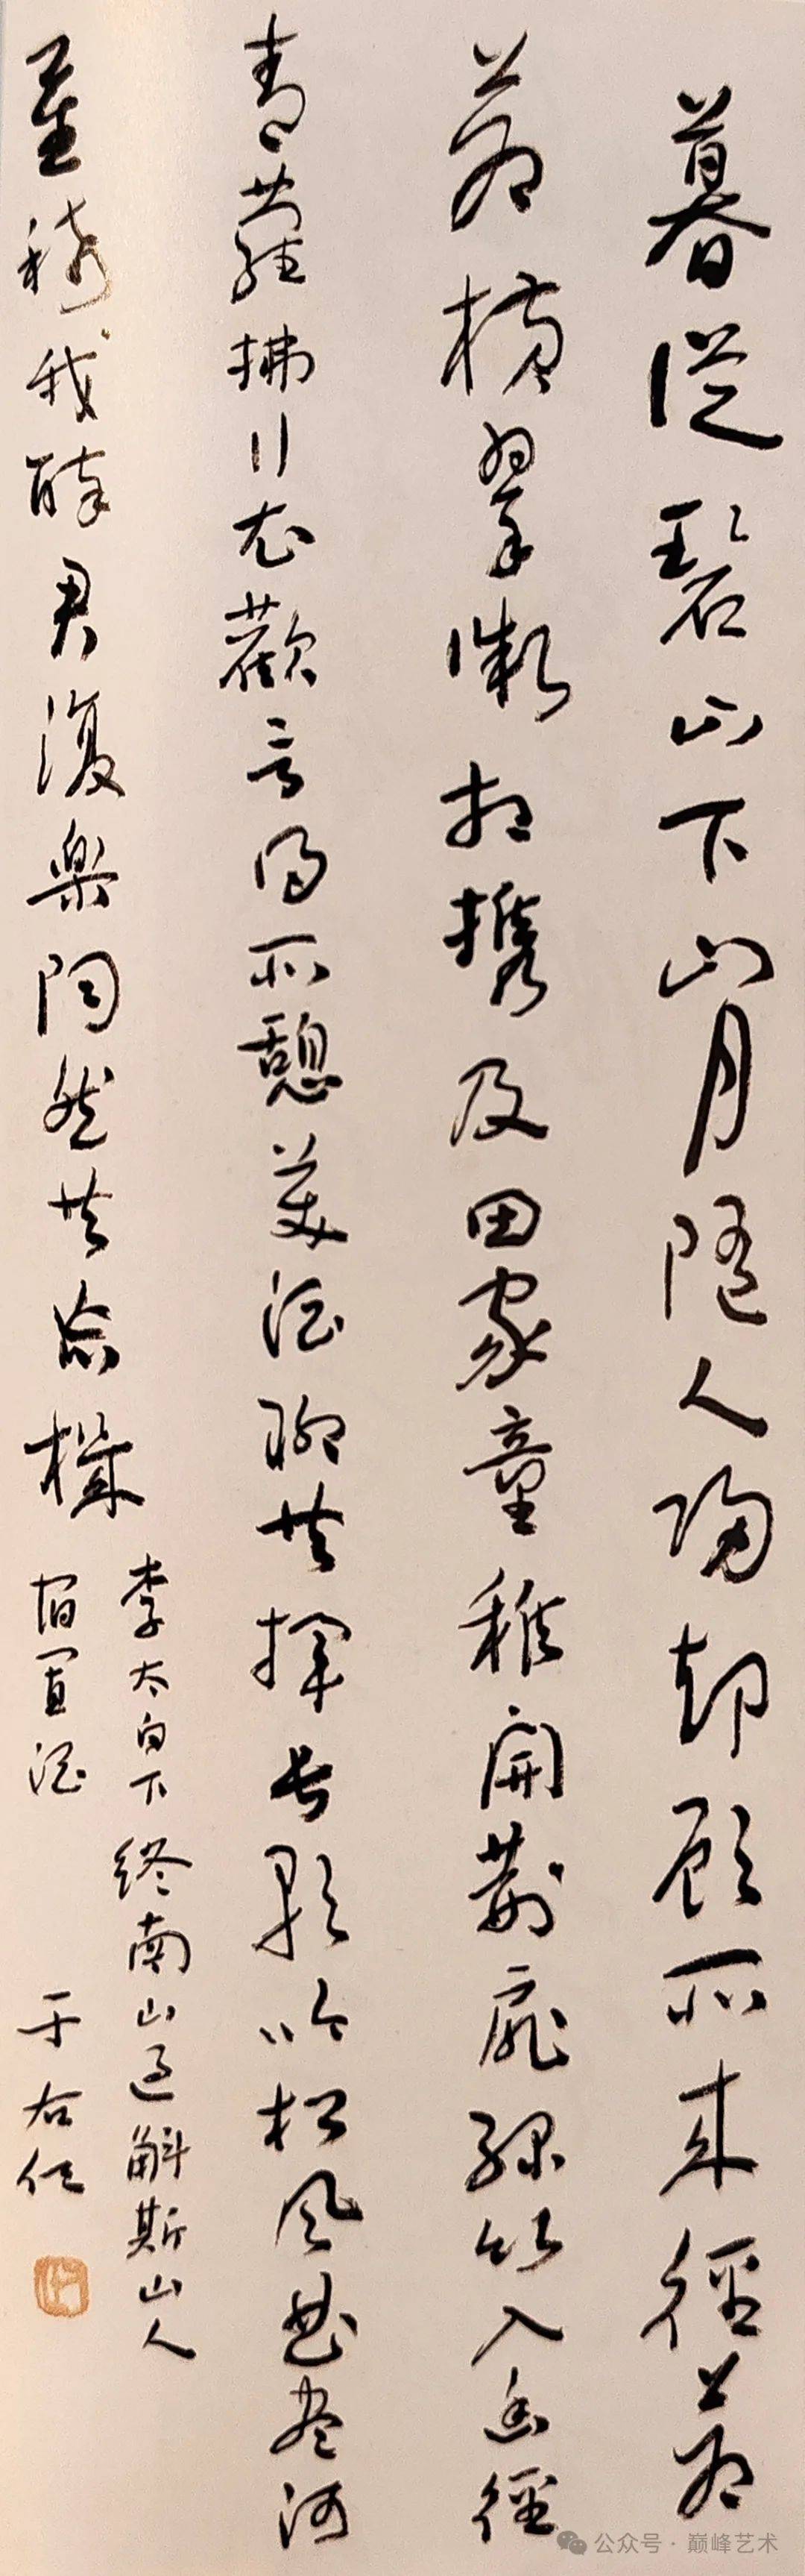 暮從碧山下山月隨人歸却顧所來徑蒼
蒼橫翠微相攜及田家童稚開荆扉綠竹入幽徑
青蘿拂行衣歡言得所憩美酒聊共揮長歌吟松風曲盡河
星稀我醉君復樂陶然共忘機
李太白下終南山過斛斯山人
宿置酒
于右任
公众号·巅峰艺术